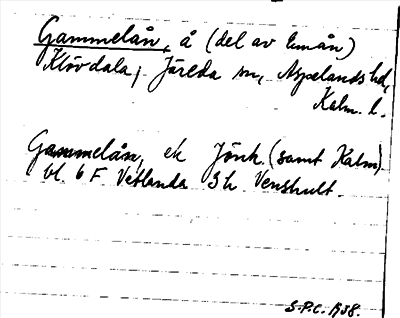 Gammelån, å (del av Emån)
Klövdala, Järeda sn, Aspelands hd,
Kalm. l.
Gammelån, ek Jönk. (samt Kalm).
bl. 6 F. Vetlanda Sh Venshult.
S.P.C. 1938.